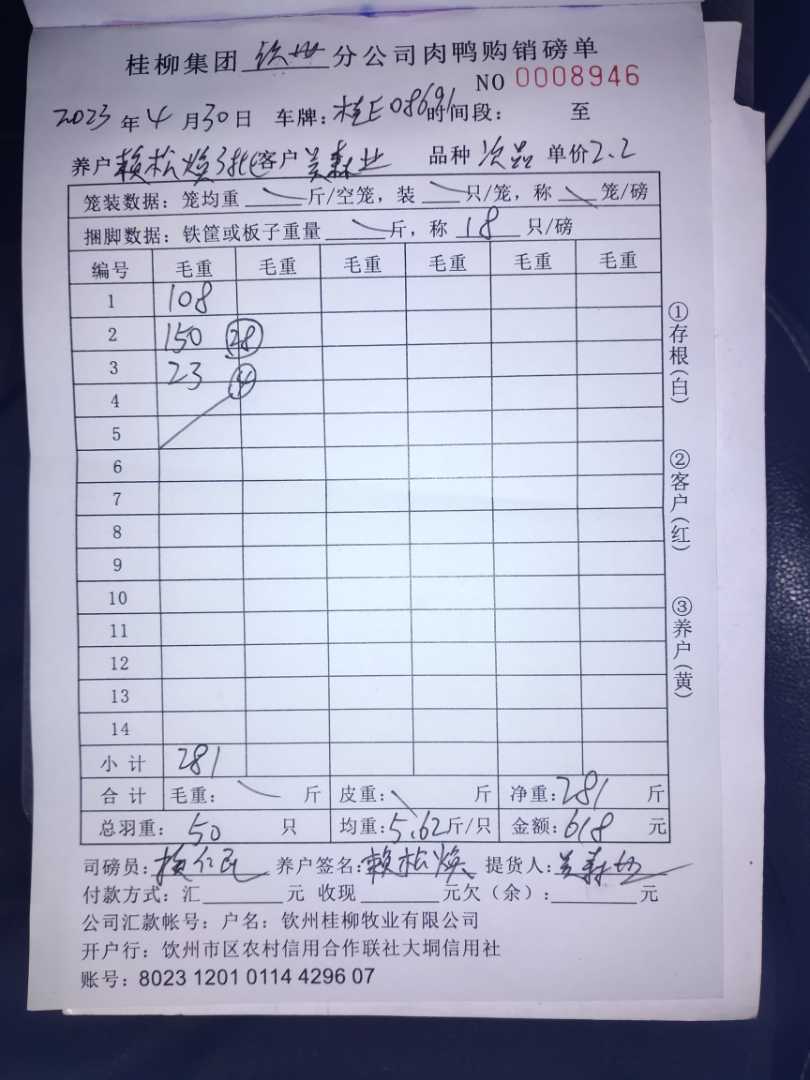 桂柳集团 钦州 分公司肉鸭购销磅单
NO 0008946
2023 年 4 月 30 日 车牌: 桂E08691 时间段: 至
养户 赖松焕 3批 客户 吴森业 品种 次品 单价 2.2
笼装数据: 笼均重 斤/空笼, 装 只/笼, 称 笼/磅
捆脚数据: 铁筐或板子重量 斤, 称 18 只/磅
编号 毛重 毛重 毛重 毛重 毛重 毛重
1 108
2 150 28
3 23 4
4
5
6
7
8
9
10
11
12
13
14
小计 281
合计 毛重: 斤 皮重: 斤 净重: 281 斤
总羽重: 50 只 均重: 5.62 斤/只 金额: 618 元
司磅员: 养户签名: 赖松焕 提货人: 吴森业
付款方式: 汇 元 收现 元欠(余): 元
公司汇款帐号: 户名: 钦州桂柳牧业有限公司
开户行: 钦州市区农村信用合作联社大垌信用社
账号: 8023 1201 0114 4296 07
①存根(白)
②客户(红)
③养户(黄)